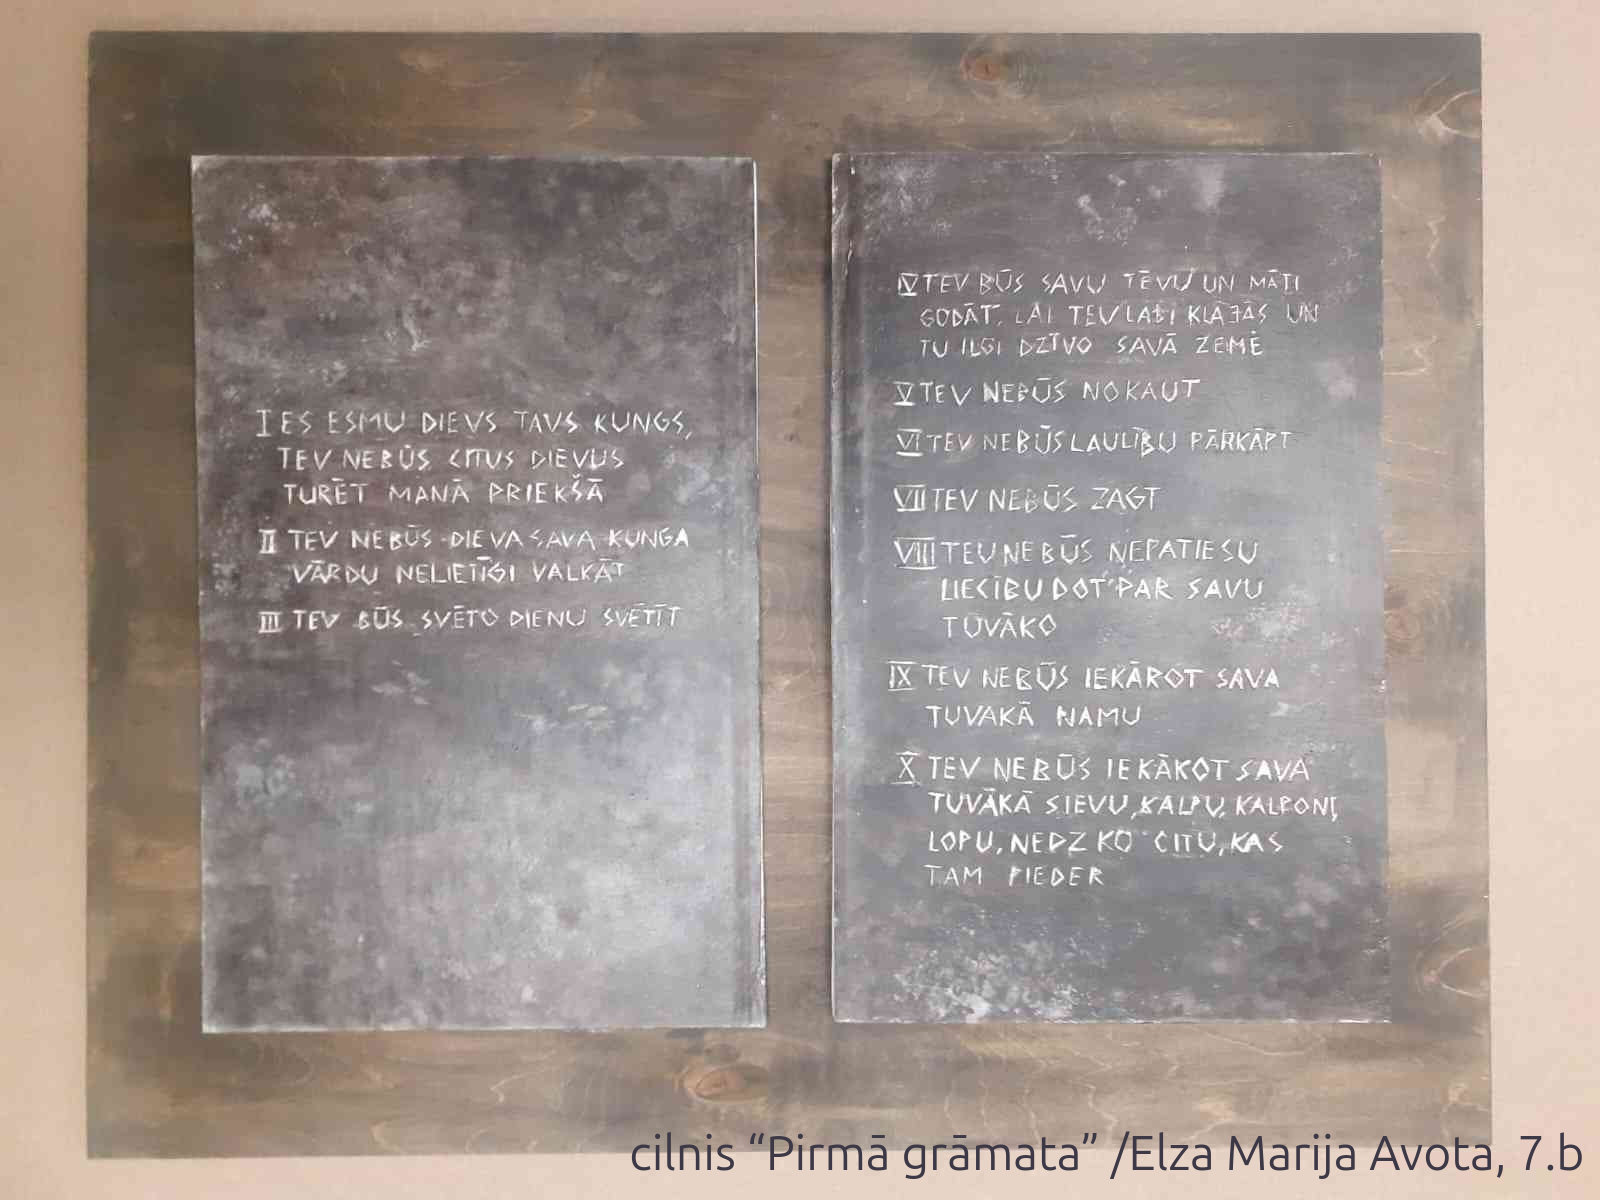 I ES ESMU DIEVS TAVS KUNGS,
TEV NEBŪS CITUS DIEVUS
TURĒT MANĀ PRIEKŠĀ
II TEV NEBŪS DIEVA SAVA KUNGA
VĀRDU NELIETĪGI VALKĀT
III TEV BŪS SVĒTO DIENU SVĒTĪT
IV TEV BŪS SAVU TĒVU UN MĀTI
GODĀT, LAI TEV LABI KLĀJĀS UN
TU ILGI DZĪVO SAVĀ ZEMĒ
V TEV NEBŪS NOKAUT
VI TEV NEBŪS LAULĪBU PĀRKĀPT
VII TEV NEBŪS ZAGT
VIII TEV NEBŪS NEPATIESU
LIECĪBU DOT PAR SAVU
TUVĀKO
IX TEV NEBŪS IEKĀROT SAVA
TUVAKĀ NAMU
X TEV NEBŪS IEKĀKOT SAVA
TUVĀKĀ SIEVU, KALPU, KALPONI,
LOPU, NEDZ KO CITU, KAS
TAM PIEDER
cilnis “Pirmā grāmata” /Elza Marija Avota, 7.b